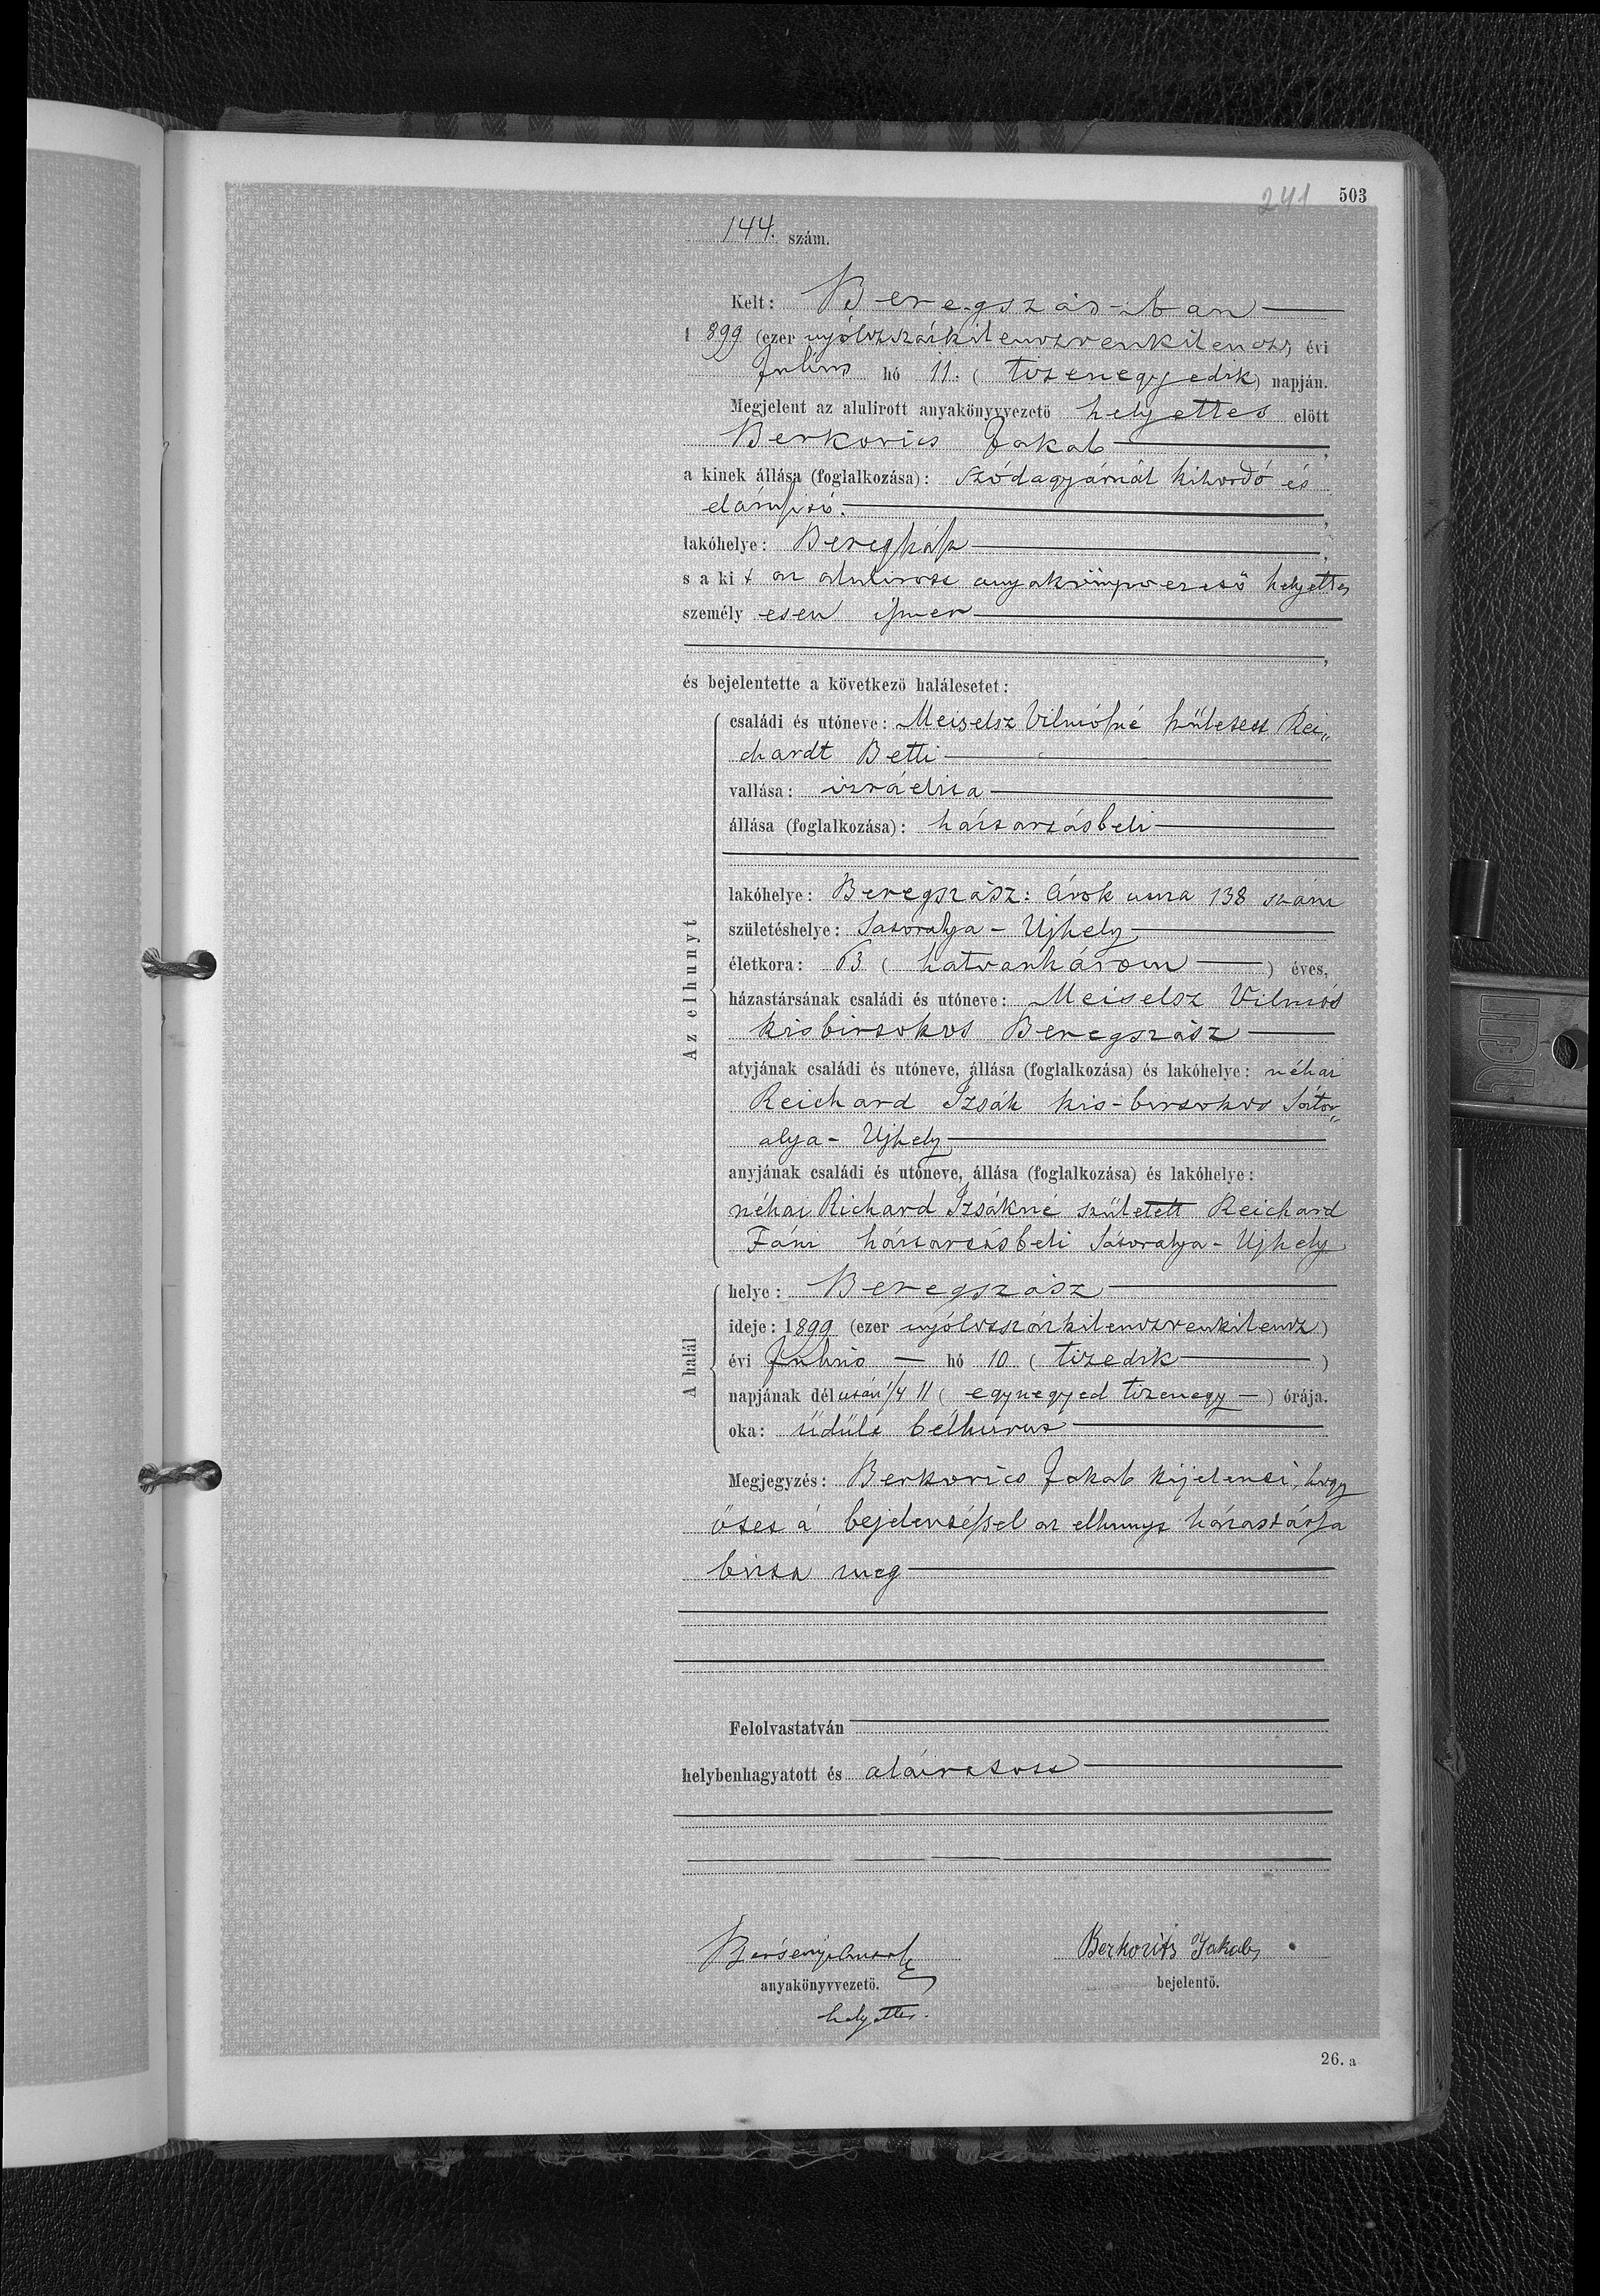 241 503
144. szám.
Kelt: Beregszászban
1899 (ezer nyólczszázkilenczvenkilencz) évi
Julius hó 11. (tizenegyedik) napján.
Megjelent az alulirott anyakönyvvezető helyettes előtt
Berkovics Jakab,
a kinek állása (foglalkozása): szódagyárnál kihordó és
elárusitó.,
lakóhelye: Beregszász,
s a kit az alulirott anyakönyvvezető helyettes
személyesen ismer
,
és bejelentette a következő halálesetet:
Az elhunyt
családi és utóneve: Meiselsz Vilmósné született Rei„
chardt Betti
vallása: izráelita
állása (foglalkozása): háztartásbeli
lakóhelye: Beregszász: Árok utcza 138 szám
születéshelye: Satoralya-Ujhely
életkora: 63 (hatvanhárom) éves,
házastársának családi és utóneve: Meiselsz Vilmós
kisbirtokos Beregszász
atyjának családi és utóneve, állása (foglalkozása) és lakóhelye: néhai
Reichard Izsák kis-birtokos Sátor„
alya-Ujhely
anyjának családi és utóneve, állása (foglalkozása) és lakóhelye:
néhai Richard Izsákné született Reichard
Fáni háztartásbeli Sátoralya-Ujhely
A halál
helye: Beregszász
ideje: 1899 (ezer nyólczszázkilenczvenkilencz)
évi Julius hó 10 (tizedik)
napjának délután 1/4 11 (egynegyed tizenegy) órája.
oka: üdült bélhurut
Megjegyzés: Berkovics Jakab kijelenti, hogy
őtet a bejelentéssel az elhunyt házastársa
bizta meg
Felolvastatván
helybenhagyatott és aláiratott
Berkovits Jakab,
anyakönyvvezető. bejelentő.
helyettes.
26. a